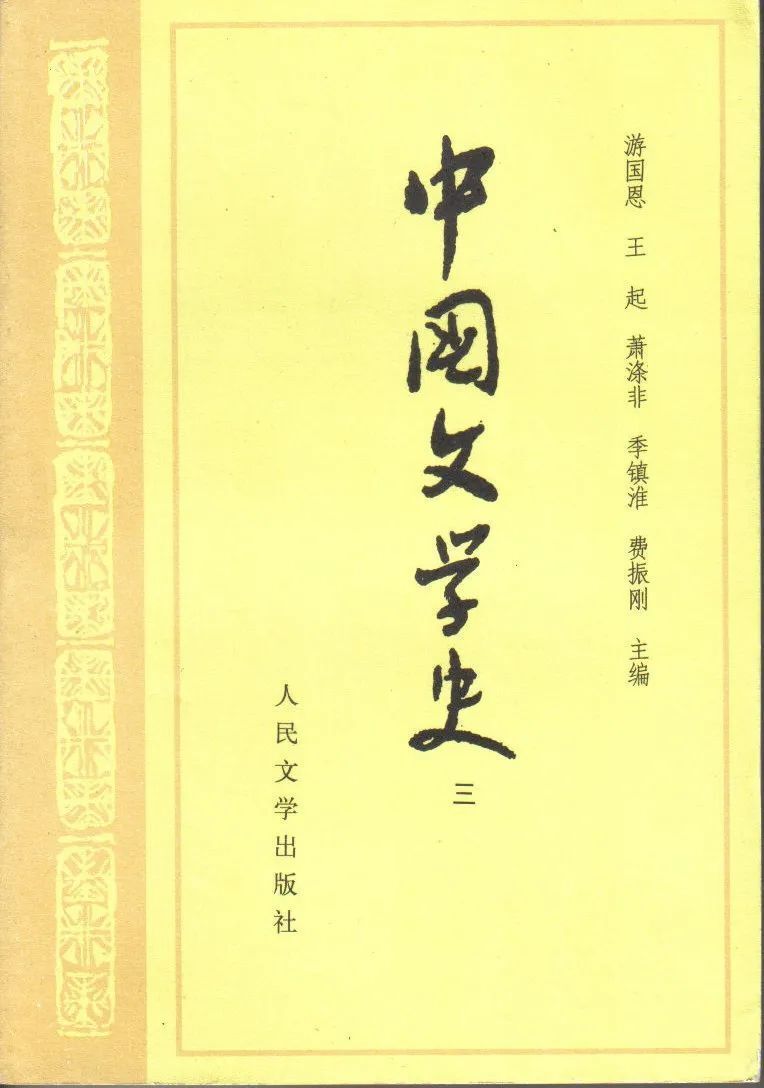 游国恩 王起 萧涤非 季镇淮 费振刚 主编
中国文学史
三
人民文学出版社